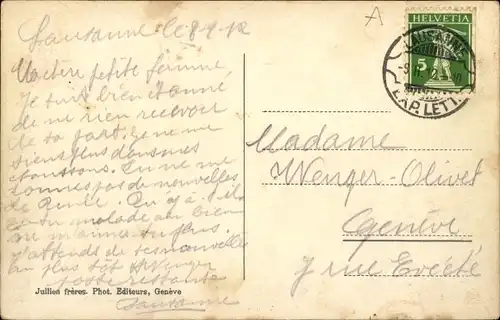 Lausanne le 8-9-12
Ma chère petite femme
Je suis bien étonné
de ne rien recevoir
de ta part. Je ne me
tiens plus dans mes
Tu ne me
donnes pas de nouvelles
de Qu'y a-t-il
es-tu malade ou bien
ne m'aimes-tu plus.
J'attends de tes nouvelles
au plus tôt Wenger
poste restante
Lausanne
Jullien frères. Phot. Editeurs, Genève
HELVETIA
5
LAUSANNE
EXP. LETT.
Madame
Wenger-Olivet
Genève
7 rue Evêché